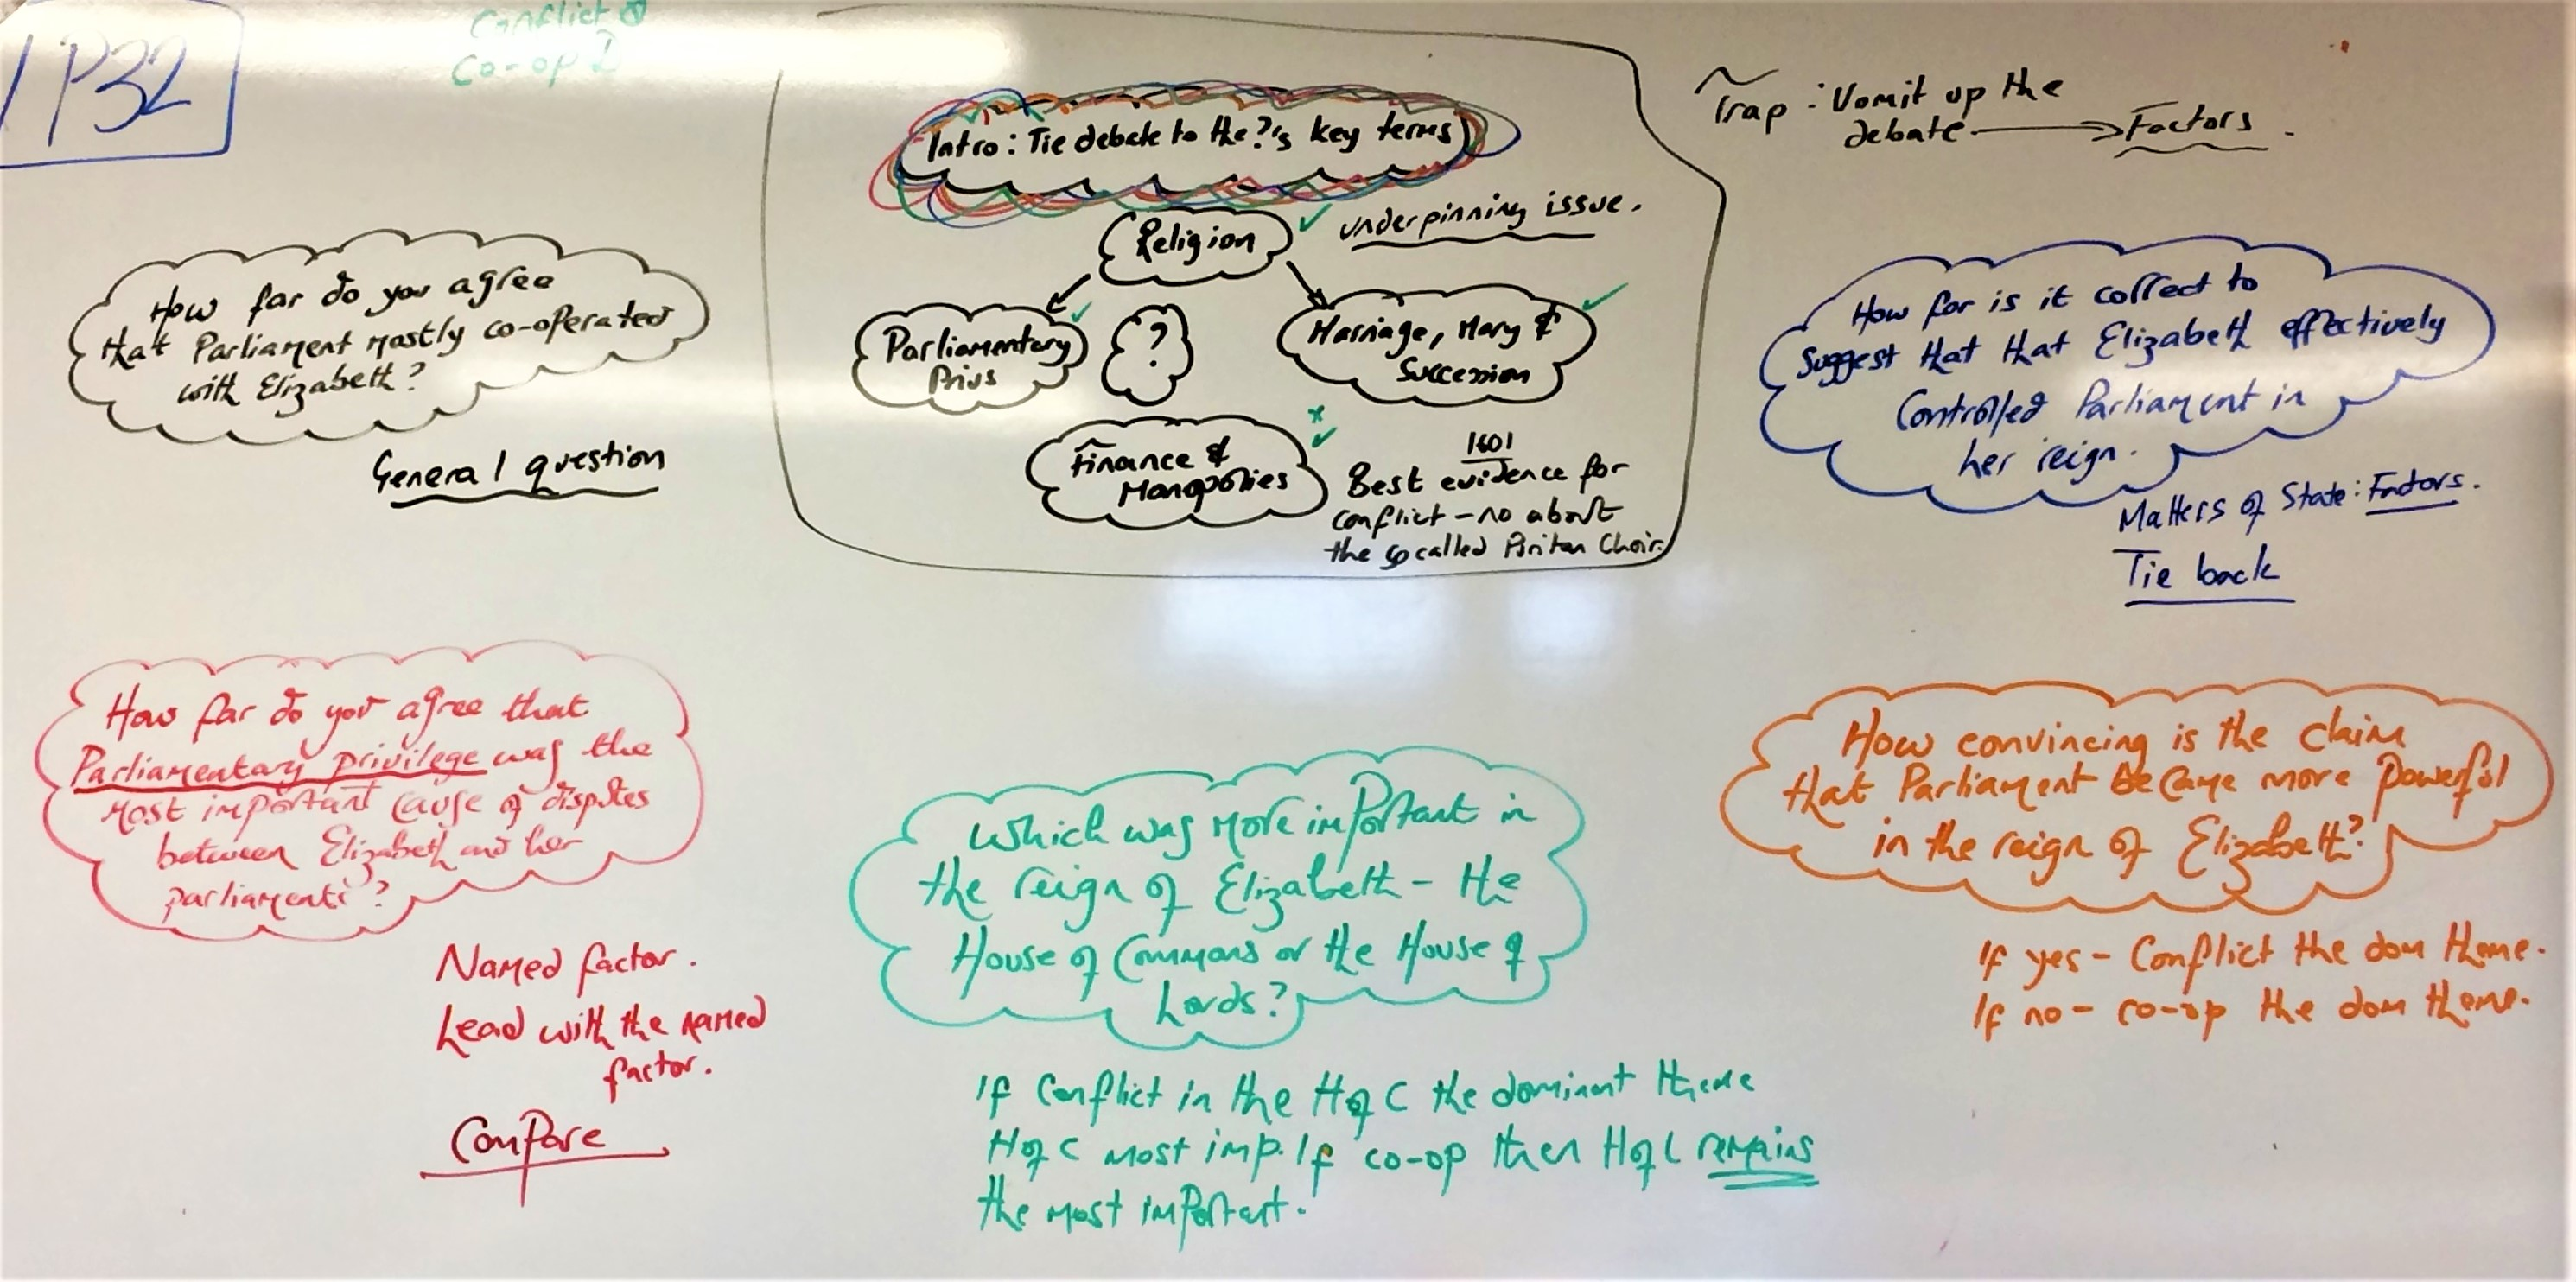 Conflict
Co-op
1P32
Intro: Tie debate to the ?'s key terms
Religion
underpinning issue.
Parliamentary
Privs
?
Marriage, Mary &
Succession
Finance &
Monopolies
1601
Best evidence for
conflict - no about
the so called Puritan Choir.
Trap: Vomit up the
debate → Factors.
How far do you agree
that Parliament mostly co-operated
with Elizabeth?
General question
How far is it correct to
suggest that that Elizabeth effectively
Controlled Parliament in
her reign.
Matters of State: Factors.
Tie back
How far do you agree that
Parliamentary privilege was the
most important cause of disputes
between Elizabeth and her
parliaments?
Named factor.
Lead with the named
factor.
Compare
Which was more important in
the reign of Elizabeth - the
House of Commons or the House of
Lords?
If Conflict in the H of C the dominant theme
H of C most imp. If co-op then H of L remains
the most important.
How convincing is the claim
that Parliament became more powerful
in the reign of Elizabeth?
If yes - Conflict the dom theme.
If no - co-op the dom theme.